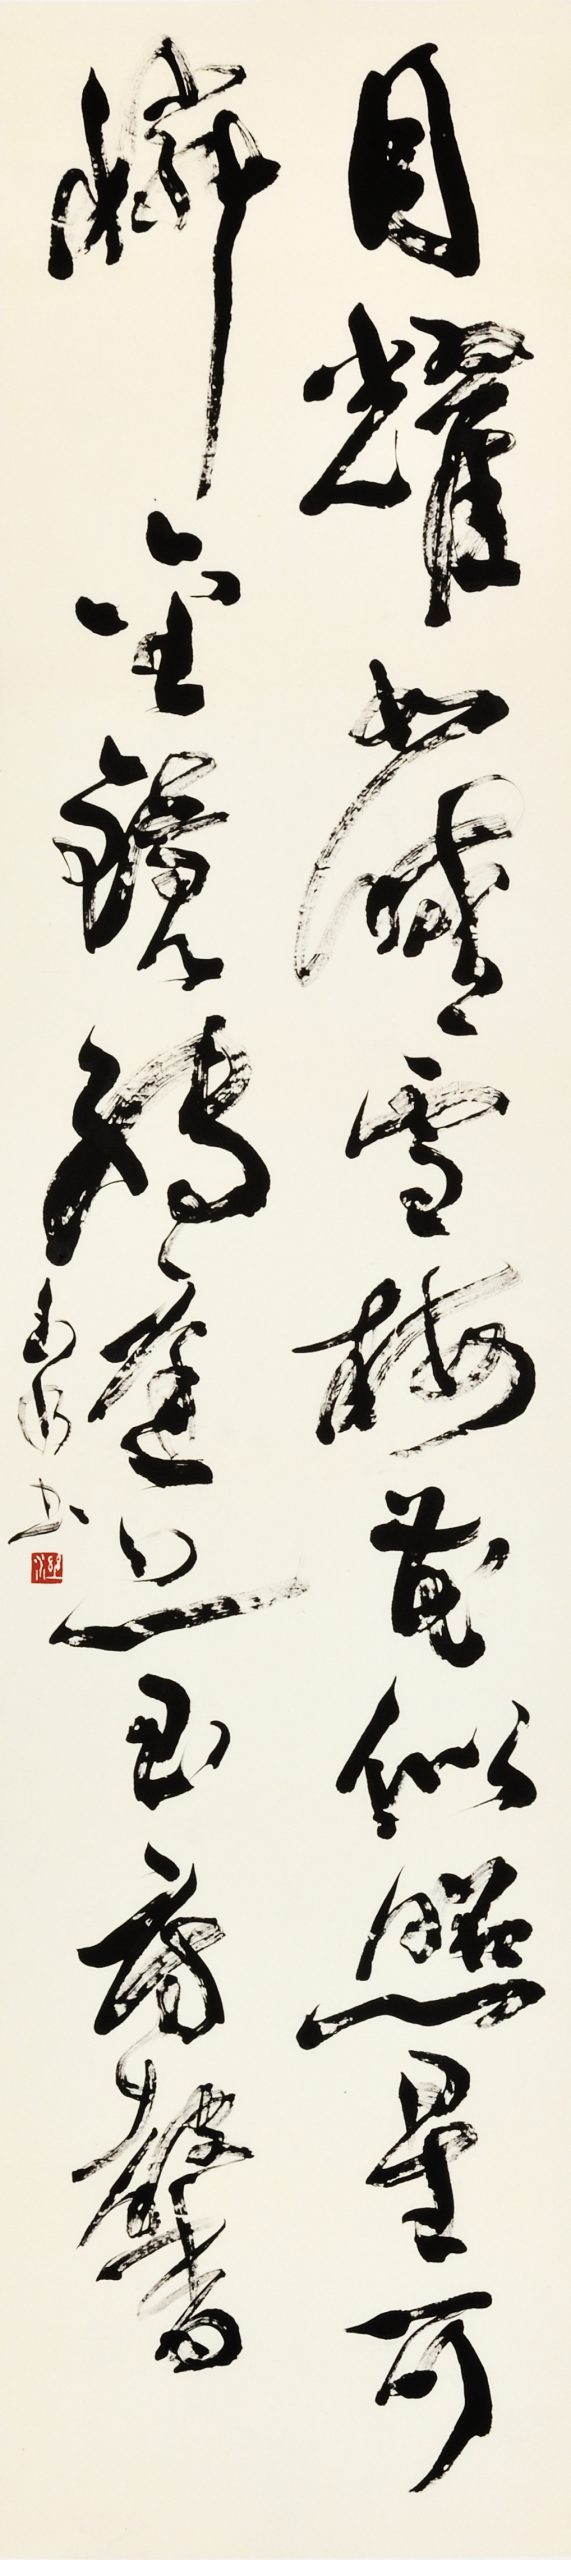 月耀如晴雪梅花似照星可
憐金鏡轉庭上玉房馨
書